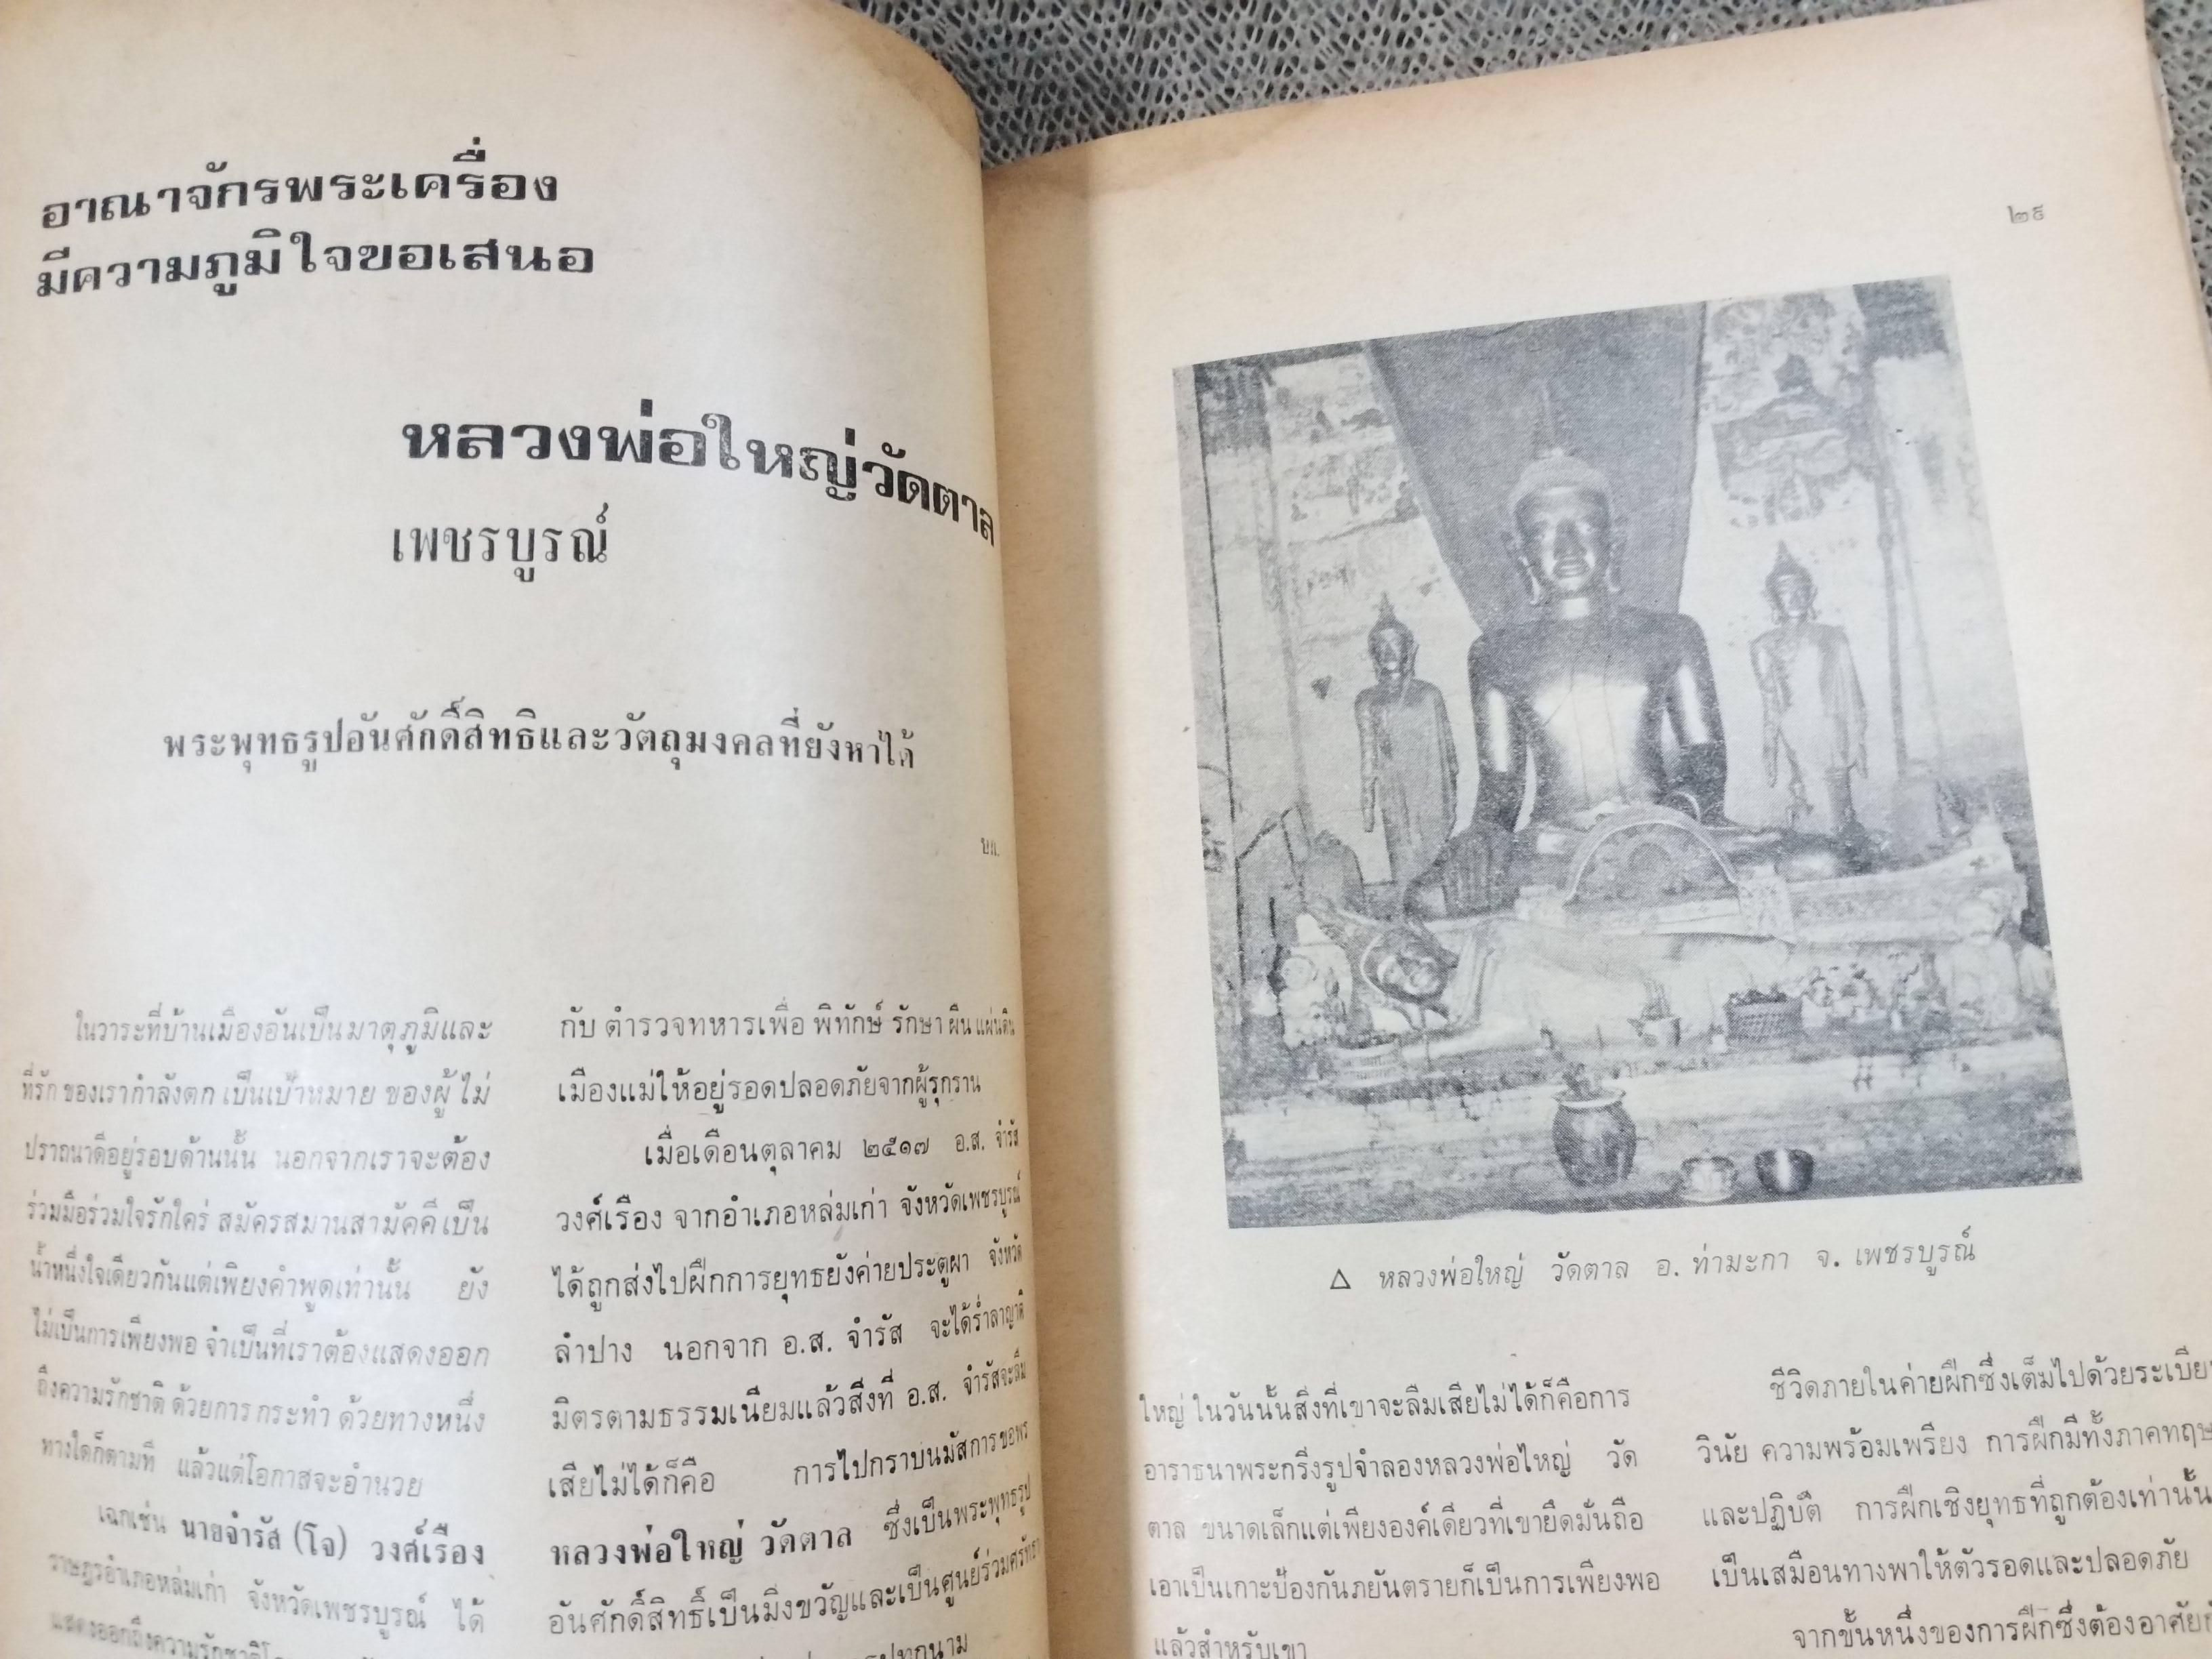 อาณาจักรพระเครื่อง
มีความภูมิใจขอเสนอ
หลวงพ่อใหญ่วัดตาล
เพชรบูรณ์
พระพุทธรูปอันศักดิ์สิทธิและวัตถุมงคลที่ยังหาได้
บก.
ในวาระที่บ้านเมืองอันเป็นมาตุภูมิและ
ที่รัก ของเรากำลังตก เป็นเป้าหมาย ของผู้ ไม่
ปราถนาดีอยู่รอบด้านนั้น นอกจากเราจะต้อง
ร่วมมือร่วมใจรักใคร่ สมัครสมานสามัคคี เป็น
น้ำหนึ่งใจเดียวกันแต่เพียงคำพูดเท่านั้น ยัง
ไม่เป็นการเพียงพอ จำเป็นที่เราต้องแสดงออก
ถึงความรักชาติ ด้วยการ กระทำ ด้วยทางหนึ่ง
ทางใดก็ตามที แล้วแต่โอกาสจะอำนวย
เฉกเช่น นายจำรัส (โจ) วงศ์เรือง
ราษฎรอำเภอหล่มเก่า จังหวัดเพชรบูรณ์ ได้
แสดงออกถึงความรักชาติ
กับ ตำรวจทหารเพื่อ พิทักษ์ รักษา ผืน แผ่นดิน
เมืองแม่ให้อยู่รอดปลอดภัยจากผู้รุกราน
เมื่อเดือนตุลาคม ๒๕๑๗ อ.ส. จำรัส
วงศ์เรือง จากอำเภอหล่มเก่า จังหวัดเพชรบูรณ์
ได้ถูกส่งไปฝึกการยุทธยังค่ายประตูผา จังหวัด
ลำปาง นอกจาก อ.ส. จำรัส จะได้ร่ำลาญาติ
มิตรตามธรรมเนียมแล้วสิ่งที่ อ.ส. จำรัสจะลืม
เสียไม่ได้ก็คือ การไปกราบนมัสการขอพร
หลวงพ่อใหญ่ วัดตาล ซึ่งเป็นพระพุทธรูป
อันศักดิ์สิทธิ์เป็นมิ่งขวัญและเป็นศูนย์ร่วมศรัทธา
๒๕
△ หลวงพ่อใหญ่ วัดตาล อ. ท่ามะกา จ. เพชรบูรณ์
ใหญ่ ในวันนั้นสิ่งที่เขาจะลืมเสียไม่ได้ก็คือการ
อาราธนาพระกริ่งรูปจำลองหลวงพ่อใหญ่ วัด
ตาล ขนาดเล็กแต่เพียงองค์เดียวที่เขายึดมั่นถือ
เอาเป็นเกาะป้องกันภยันตรายก็เป็นการเพียงพอ
แล้วสำหรับเขา
ชีวิตภายในค่ายฝึกซึ่งเต็มไปด้วยระเบีย
วินัย ความพร้อมเพรียง การฝึกมีทั้งภาคทฤษ
และปฏิบัติ การฝึกเชิงยุทธที่ถูกต้องเท่านั้น
เป็นเสมือนทางพาให้ตัวรอดและปลอดภัย
จากขั้นหนึ่งของการฝึกซึ่งต้องอาศัย